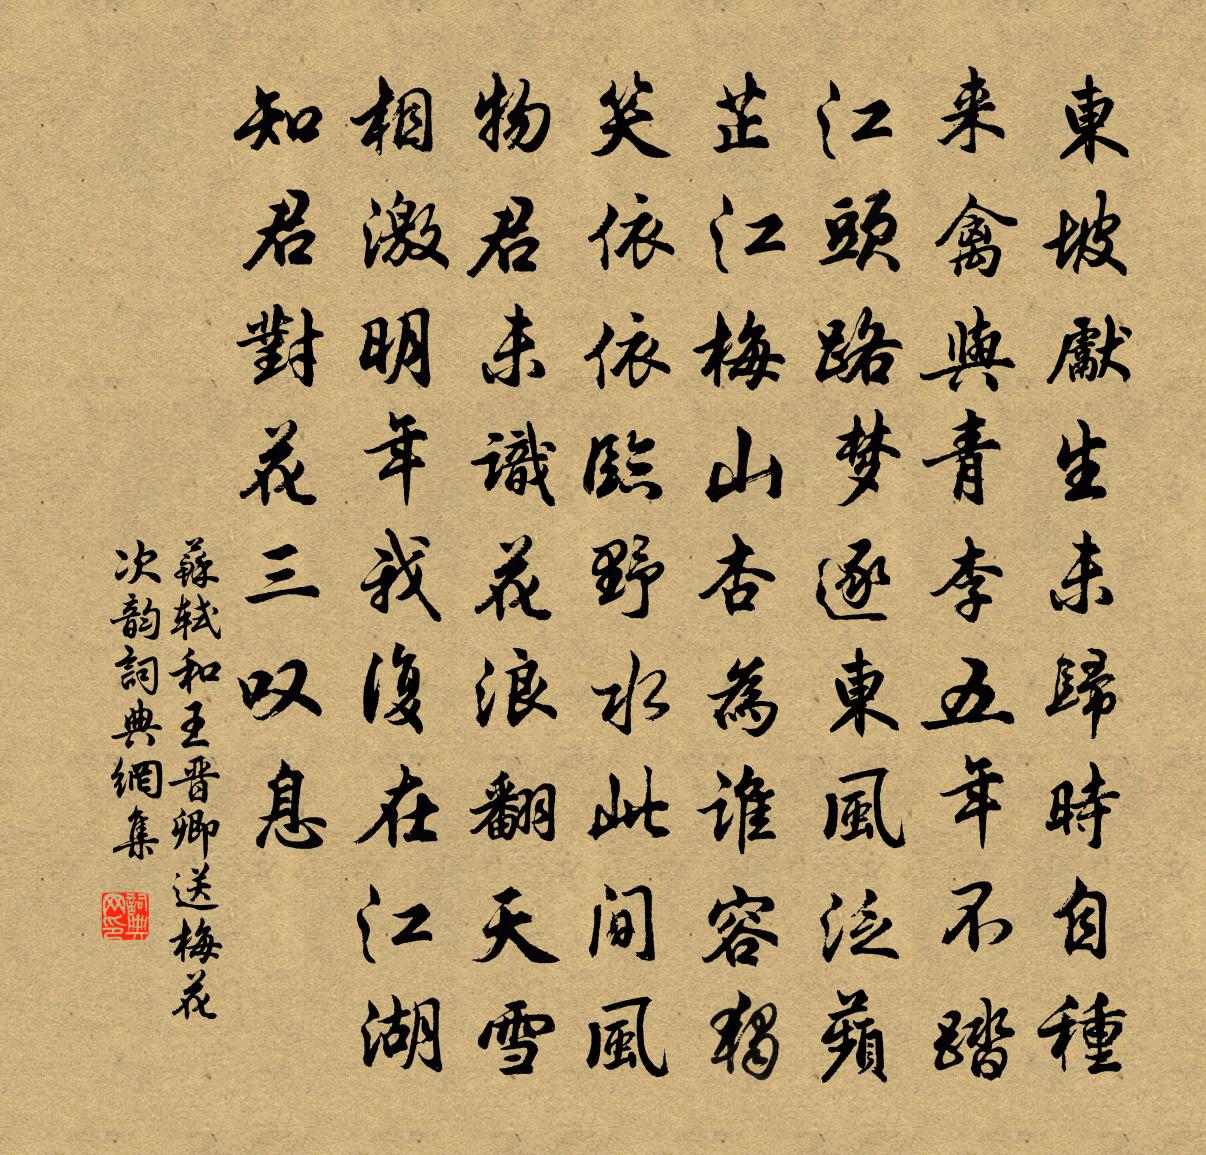 東坡獻生未歸時自種
来禽與青李五年不踏
江頭路梦逐東風泛蘋
芷江梅山杏為誰容獨
笑依依臨野水此间風
物君未識花浪翻天雪
相激明年我復在江湖
知君對花三叹息
蘇軾和王晋卿送梅花
次韵詞典網集
詞典
网印